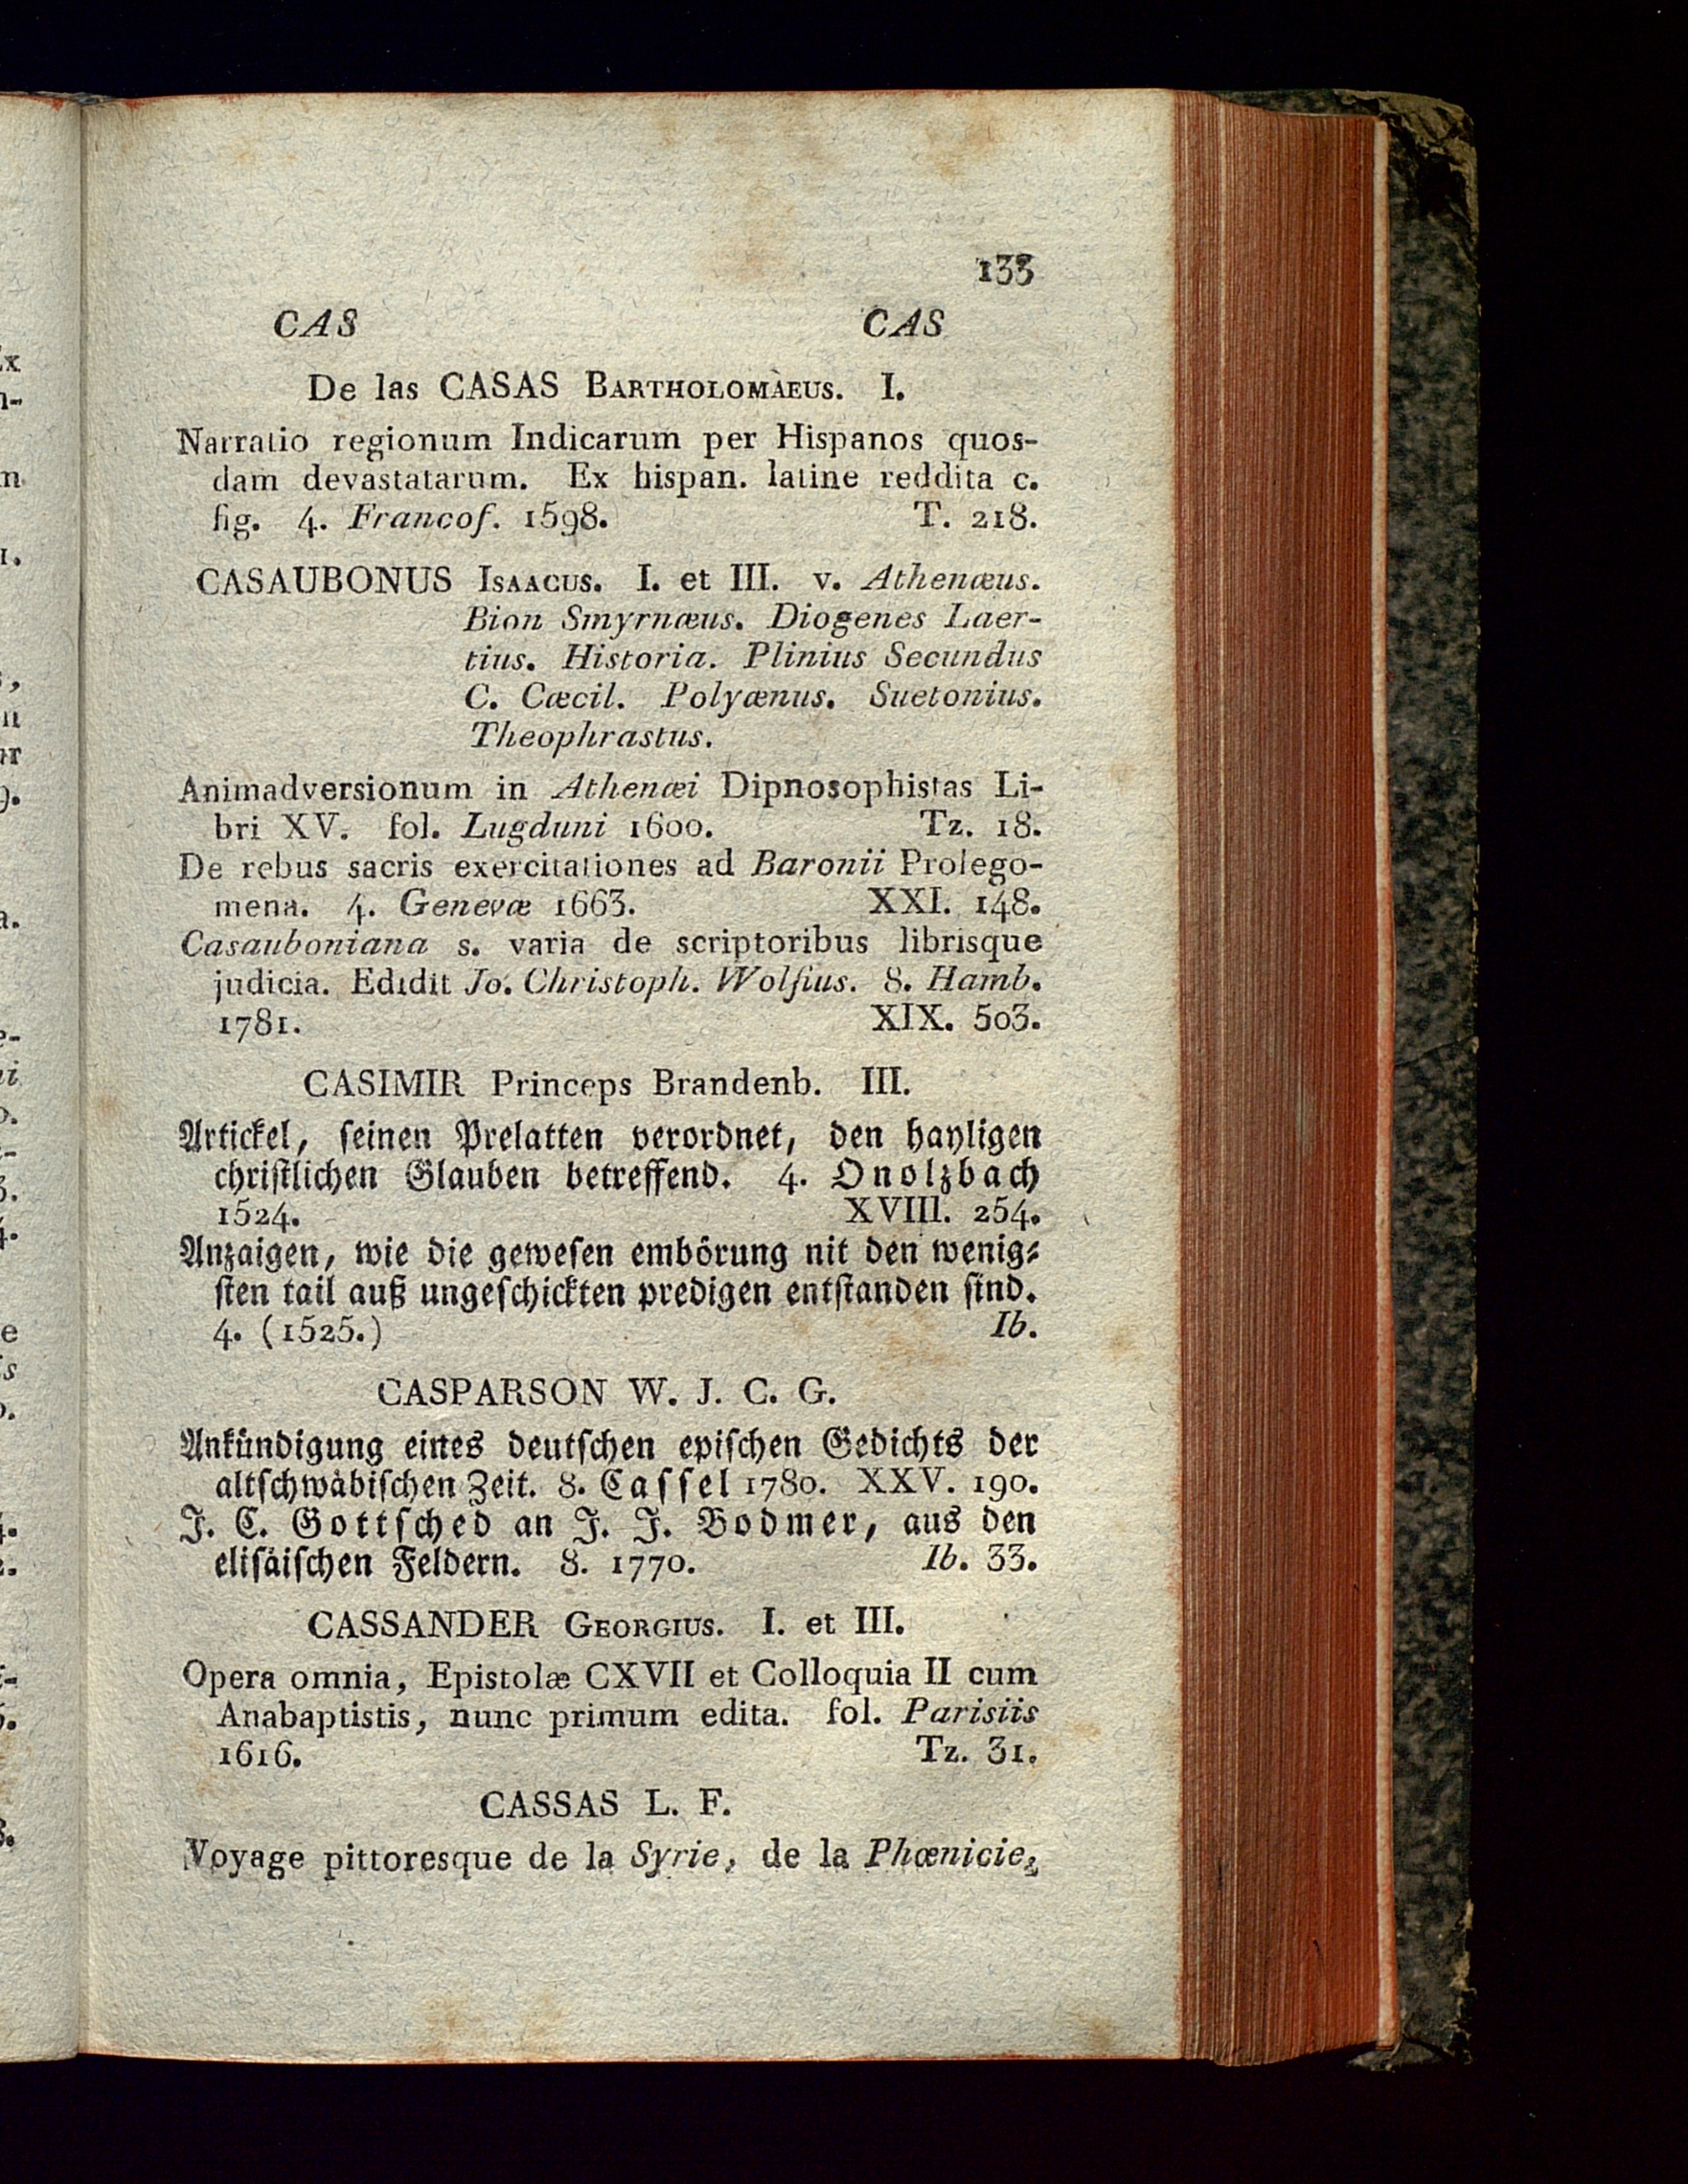 133
CAS CAS
De las CASAS BARTHOLOMÀEUS. I.
Narratio regionum Indicarum per Hispanos quos-
dam devastatarum. Ex hispan. latine reddita c.
fig. 4. Francof. 1598. T. 218.
CASAUBONUS ISAACUS. I. et III. v. Athenæus.
Bion Smyrnæus. Diogenes Laer-
tius. Historia. Plinius Secundus
C. Cæcil. Polyænus. Suetonius.
Theophrastus.
Animadversionum in Athenæi Dipnosophistas Li-
bri XV. fol. Lugduni 1600. Tz. 18.
De rebus sacris exercitationes ad Baronii Prolego-
mena. 4. Genevæ 1663. XXI. 148.
Casauboniana s. varia de scriptoribus librisque
judicia. Edidit Jo. Christoph. Wolfius. 8. Hamb.
1781. XIX. 503.
CASIMIR Princeps Brandenb. III.
Artickel, seinen Prelatten verordnet, den hayligen
christlichen Glauben betreffend. 4. Onolzbach
1524. XVIII. 254.
Anzaigen, wie die gewesen embörung nit den wenig-
sten tail auß ungeschickten predigen entstanden sind.
4. (1525.) Ib.
CASPARSON W. J. C. G.
Ankündigung eines deutschen epischen Gedichts der
altschwäbischen Zeit. 8. Cassel 1780. XXV. 190.
J. C. Gottsched an J. J. Bodmer, aus den
elisäischen Feldern. 8. 1770. Ib. 33.
CASSANDER GEORGIUS. I. et III.
Opera omnia, Epistolæ CXVII et Colloquia II cum
Anabaptistis, nunc primum edita. fol. Parisiis
1616. Tz. 31.
CASSAS L. F.
Voyage pittoresque de la Syrie, de la Phœnicie,